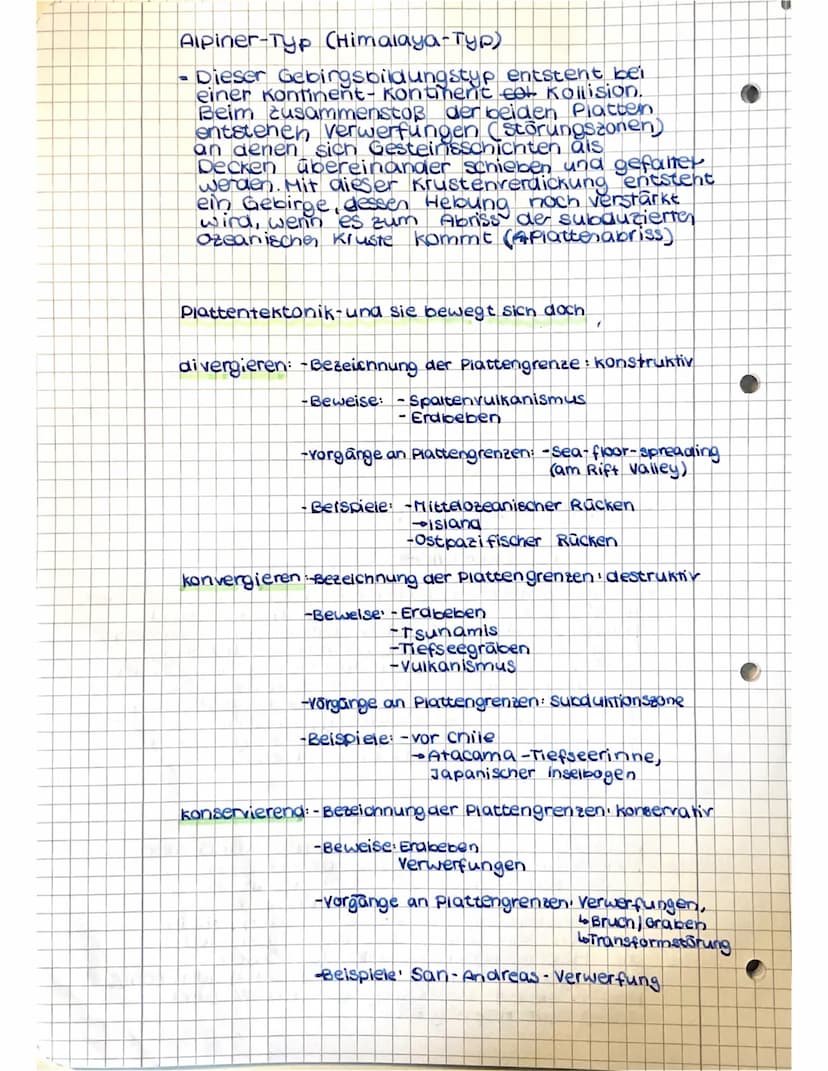 Alpiner-Typ (Himalaya-Typ)
- Dieser Gebirgsbildungstyp entsteht bei
einer Kontinent-Kontinent Kollision.
Beim Zusammenstoß der beiden Platten
entstehen Verwerfungen (Störungszonen)
an denen sich Gesteinsschichten als
Decken übereinander schieben und gefaltet
werden. Mit dieser Krustenverdickung entsteht
ein Gebirge, dessen Hebung noch verstärkt
wird, wenn es zum Abriss der subduzierten
Ozeanischen Kruste kommt (Plattenabriss)
Plattentektonik-und sie bewegt sich doch
divergieren: -Bezeichnung der Plattengrenze: konstruktiv
-Beweise: -Spaltenvulkanismus
-Erdbeben
-Vorgänge an Plattengrenzen: -Sea-floor-spreading
(am Rift Valley)
-Beispiele: -Mittelozeanischer Rücken
→Island
-Ostpazifischer Rücken
konvergieren: -Bezeichnung der Plattengrenzen: destruktiv
-Beweise: -Erdbeben
-Tsunamis
-Tiefseegräben
-Vulkanismus
-Vorgänge an Plattengrenzen: Subduktionszone
-Beispiele: -vor Chile
→Atacama-Tiefseerinne,
Japanischer Inselbogen
konservierend: -Bezeichnung der Plattengrenzen: konservativ
-Beweise: Erdbeben
Verwerfungen
-Vorgänge an Plattengrenzen: Verwerfungen,
↳Bruch/Graben
↳Transformstörung
-Beispiele: San-Andreas-Verwerfung